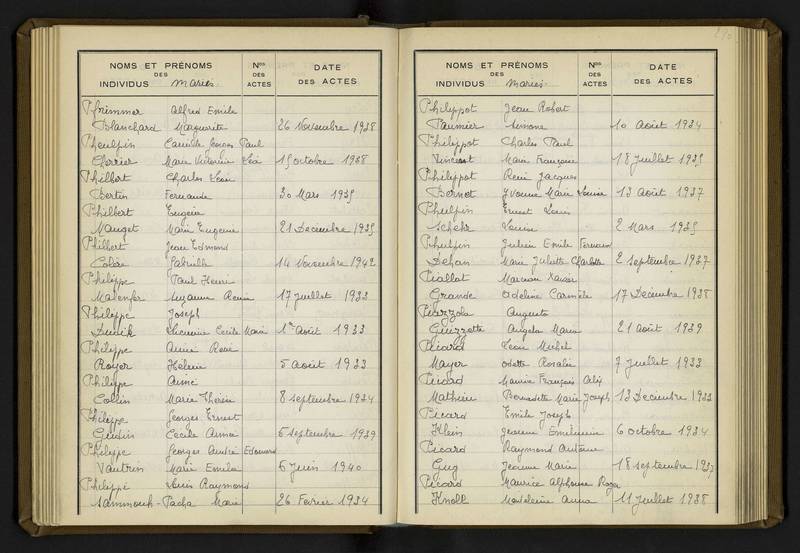 NOMS ET PRÉNOMS
DES
INDIVIDUS Mariés
Nos
DES
ACTES
DATE
DES ACTES
Pfrimmer Alfred Emile
Blanchard Marguerite 26 Novembre 1938
Pheulpin Camille Georges Paul
Cerrier Marie Victorine Léa 15 octobre 1938
Philbert Charles Léon
Bertin Fernande 30 Mars 1935
Philbert Eugène
Mauget Marie Eugénie 21 Decembre 1935
Philbert Jean Edmond
Colère Gabrielle 14 Novembre 1942
Philippe Paul Henri
Malenfer Suzanne Renée 17 juillet 1933
Philippe Joseph
Lucienne Cécile Marie 1er Août 1933
Philippe Aimé René
Royer Hélène 5 août 1933
Philippe Aimé
Collin Marie Thérèse 8 septembre 1934
Philippe Georges Ernest
Geudin Cécile Anna 5 septembre 1939
Philippe Georges André Edouard
Vautrin Marie Emilie 5 juin 1940
Philippé Louis Raymond
Sammouh-Pacha Marie 26 Fevrier 1934
NOMS ET PRÉNOMS
DES
INDIVIDUS Mariés
Nos
DES
ACTES
DATE
DES ACTES
Philippot Jean Robert
Paumier Simone 10 Août 1934
Philippot Charles Paul
Vincent Marie Françoise 18 juillet 1935
Philippot René Jacques
Bernet Yvonne Marie Louise 13 Août 1937
Phulpin Ernest Louis
Schehr Louise 2 Mars 1935
Phulpin Julien Emile Fernand
Dehan Marie Juliette Charlotte 2 septembre 1937
Piallat Marcien Xavier
Grande Adeline Carmèle 17 Décembre 1938
Piazzola Auguste
Guizzette Angela Maria 21 août 1939
Picard Léon Michel
Mayer Odette Rosalie 7 juillet 1933
Picard Maurice François Alix
Mathieu Bernadette Marie Joseph 13 Decembre 1933
Picard Emile Joseph
Klein Jeanne Emilienne 6 octobre 1934
Picard Raymond Antoine
Gug Jeanne Marie 18 septembre 1937
Picard Maurice Alphonse Roger
Knoll Madeleine Anna 11 juillet 1938